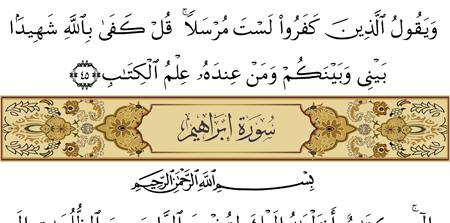 وَيَقُولُ الَّذِينَ كَفَرُوا۟ لَسْتَ مُرْسَلًا ۚ قُلْ كَفَىٰ بِاللَّهِ شَهِيدًۢا
بَيْنِي وَبَيْنَكُمْ وَمَنْ عِندَهُۥ عِلْمُ الْكِتَٰبِ
سُورَةُ إِبْرَاهِيم
بِسْمِ اللَّهِ الرَّحْمَٰنِ الرَّحِيمِ